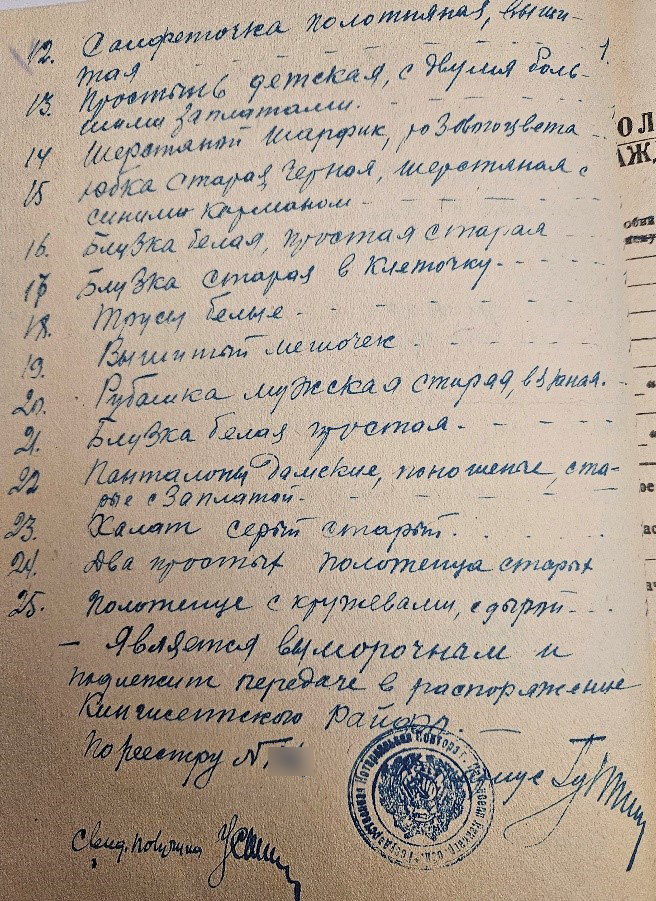 12. Салфеточка полотняная, выши-
тая
13. Простынь детская, с двумя боль-
шими заплатами.
14 Шерстяной шарфик, розового цвета
15 юбка старая, черная, шерстяная с
синими карманом
16. Блузка белая, простая старая
17 Блузка старая в клеточку.
18. Трусы белые.
19. Вышитый мешочек
20. Рубашка мужская старая, вязаная.
21. Блузка белая простая.
22 Панталоны дамские, поношеные, ста-
рые с заплатой.
23. Халат серый старый.
24. Два простых полотенца старых
25. Полотенце с кружевами, с дырой
– Является выморочным и
подлежит передаче в распоряжение
Кингисеппского Райфо.
По реестру №
Свид. получила